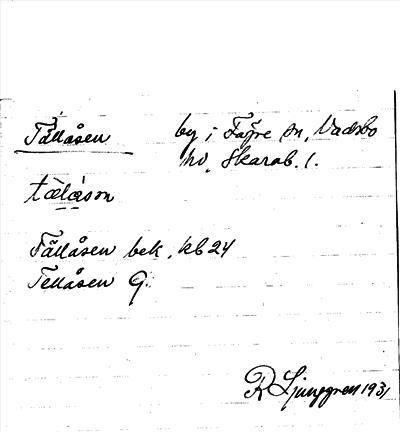 Tållåsen by i Fägre sn, Vadsbo
hd, Skarab. l.
tälåson
Tållåsen bek. kb 24
Tellåsen G.
R Ljunggren 1931